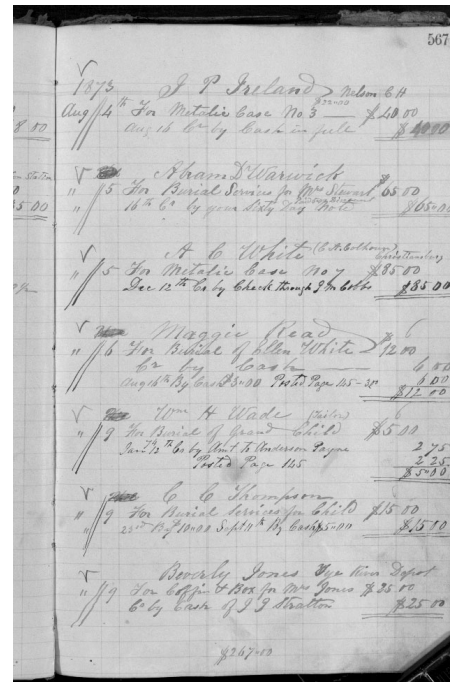 567
1873 J P Ireland Nelson C H
$32.00
Aug 4th For Metalic Case No. 3 — $40.00
Aug 16 Cr by Cash in full $40.00
Abram D Warwick
" 5 For Burial Services for Mrs Stewart $65.00
16th Cr by your Sixty Day Note $65.00
A C White (C. H. Calhoun) Christiansburg
" 5 For Metalic Case No 7 $85.00
Dec 12th Cr by Check through J M Cobbs $85.00
Maggie Read
" 6 For Burial of Ellen White — $12.00
Cr by Cash — 6 00
Aug 16th By Cash $3.00 Posted Page 145 6 00
$12.00
Wm H Wade (Tailor)
" 9 For Burial of Grand Child $5.00
12th Cr by Amt. to Anderson Payne 2 75
Posted Page 145 2 25
$5.00
C C Thompson
" 9 For Burial Services for Child $15.00
23rd By $10.00 Sept 11th By Cash $5.00 $15.00
Beverly Jones Tye River Depot
" 9 For Coffin & Box for Mrs Jones $25.00
Cr by Cash of J J Stratton $25.00
$267.00
8 00
5 00